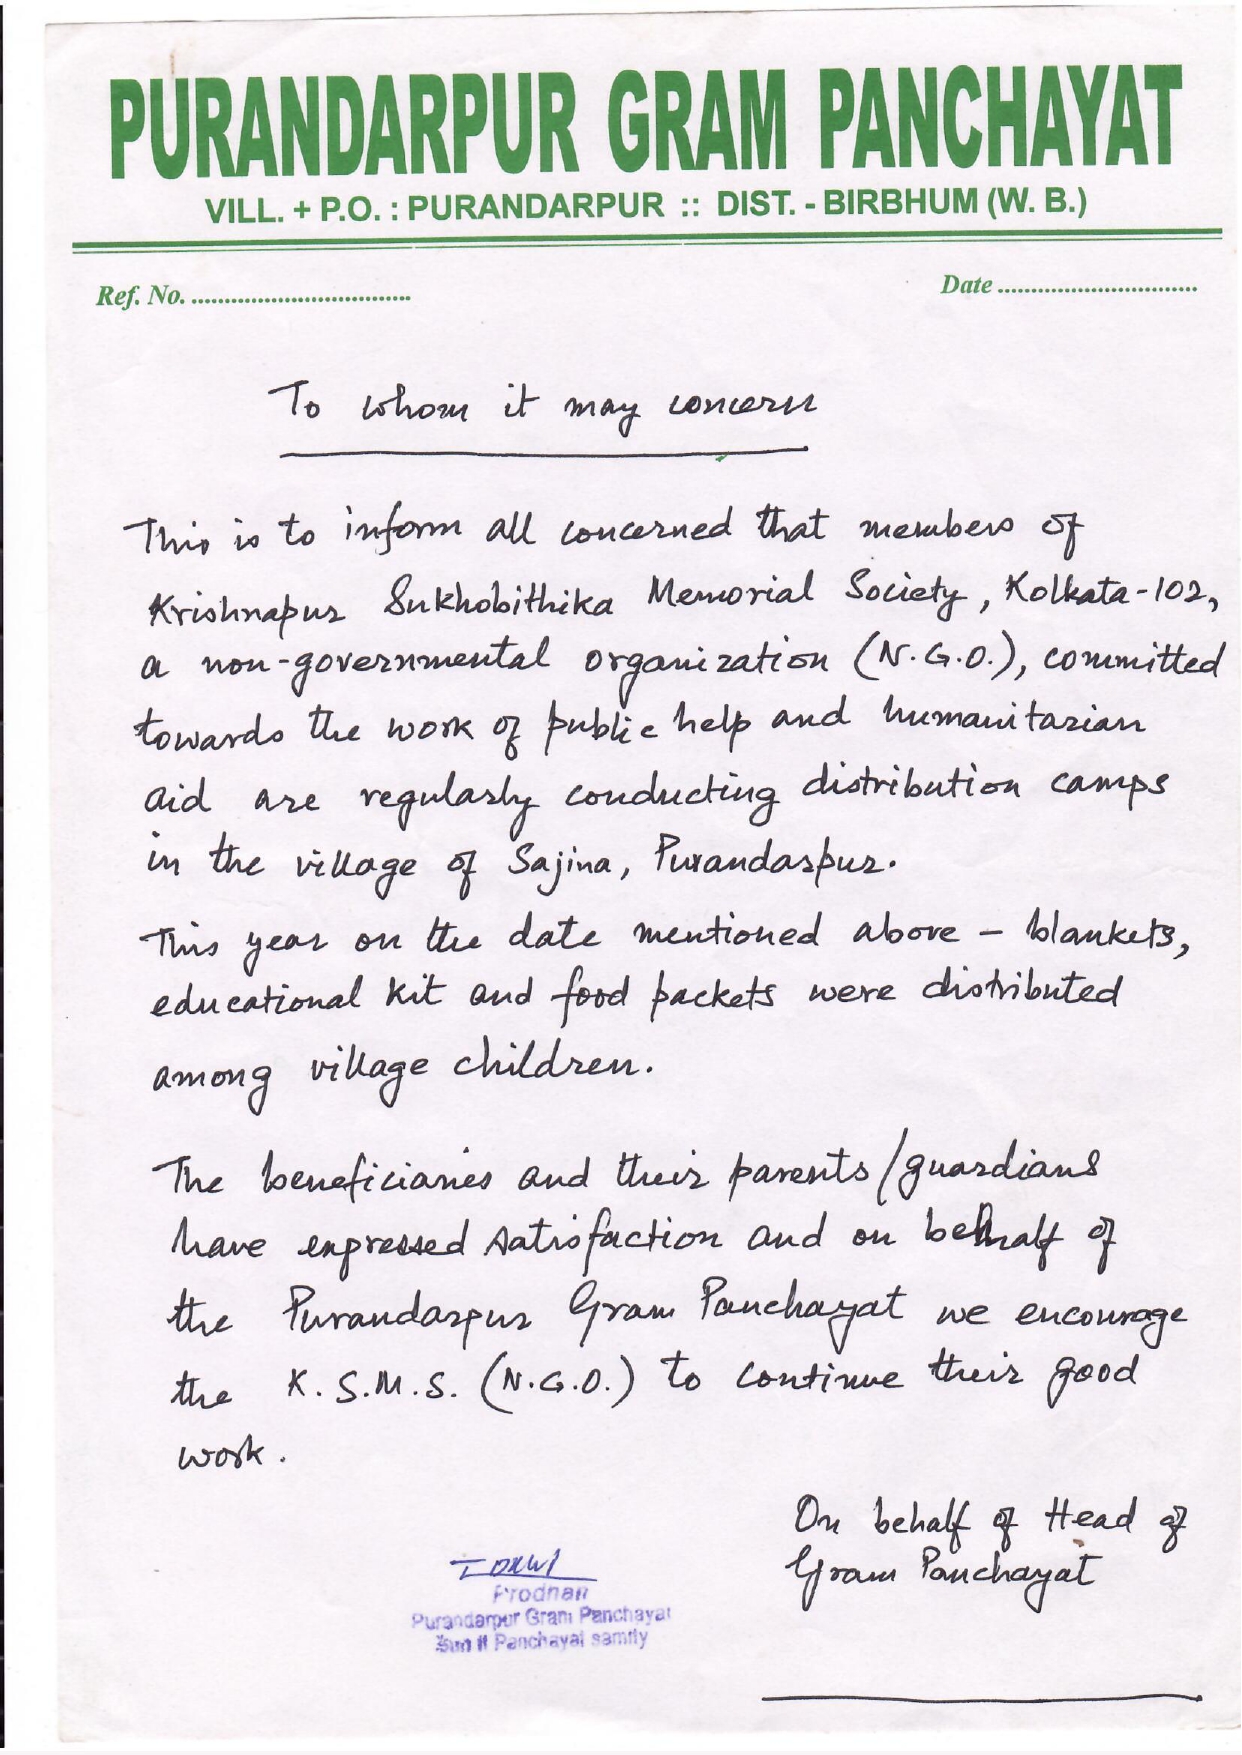 PURANDARPUR GRAM PANCHAYAT
VILL. + P.O. : PURANDARPUR :: DIST. - BIRBHUM (W. B.)
Ref. No. .................................
Date ..............................
To whom it may concern
This is to inform all concerned that members of
Krishnapur Sukhobithika Memorial Society, Kolkata-102,
a non-governmental organization (N.G.O.), committed
towards the work of public help and humanitarian
aid are regularly conducting distribution camps
in the village of Sajina, Purandarpur.
This year on the date mentioned above – blankets,
educational kit and food packets were distributed
among village children.
The beneficiaries and their parents/guardians
have expressed satisfaction and on behalf of
the Purandarpur Gram Panchayat we encourage
the K.S.M.S. (N.G.O.) to continue their good
work.
On behalf of Head of
Gram Panchayat
Prodhan
Purandarpur Gram Panchayat
II Panchayat samity